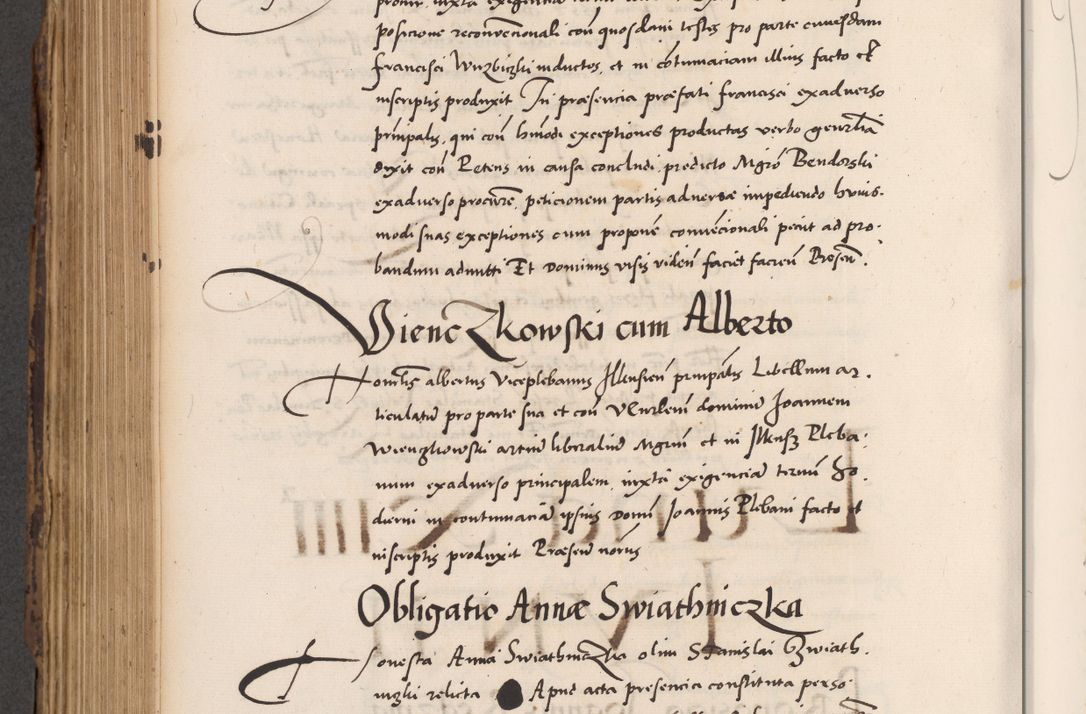 posicione reconvencionali con quosdam testes pro parte eiuusdam
Francisci Wirzbiczki inductos, et in contumaciam illius facto et
inscriptis produxit In præsencia præfati Francisci exadverso
principalis, qui con hmodi exceptiones productas verbo genrlia
dixit con Petens in causa concludi predicto Mgro Bendorski
exadverso procure, peticionem partis adversæ impediendo huius-
modi suas exceptiones cum propone convecionali petiit ad pro-
bandum admitti Et Dominus visis viden faciet facien Presen.
Wienczkowski cum Alberto
Honlis albertus Viceplebanus Illensien principalis Libellum ar-
ticulatu pro parte sua et con Vlurlem dominu Joannem
Wienczkowski artiu liberaliu Mgrum et in Pleba-
num exadverso principalem, iuxta exigencia termi Ho-
dierni in contumacia ipsius Domi Joannis Plebani facto et
inscriptis produxit Præsen norus
Obligatio Annæ Swiathniczka
Honesta Anna Swiathniczka olim Stanislai Swiath-
niczki relicta Apud acta presencia constituta perso-